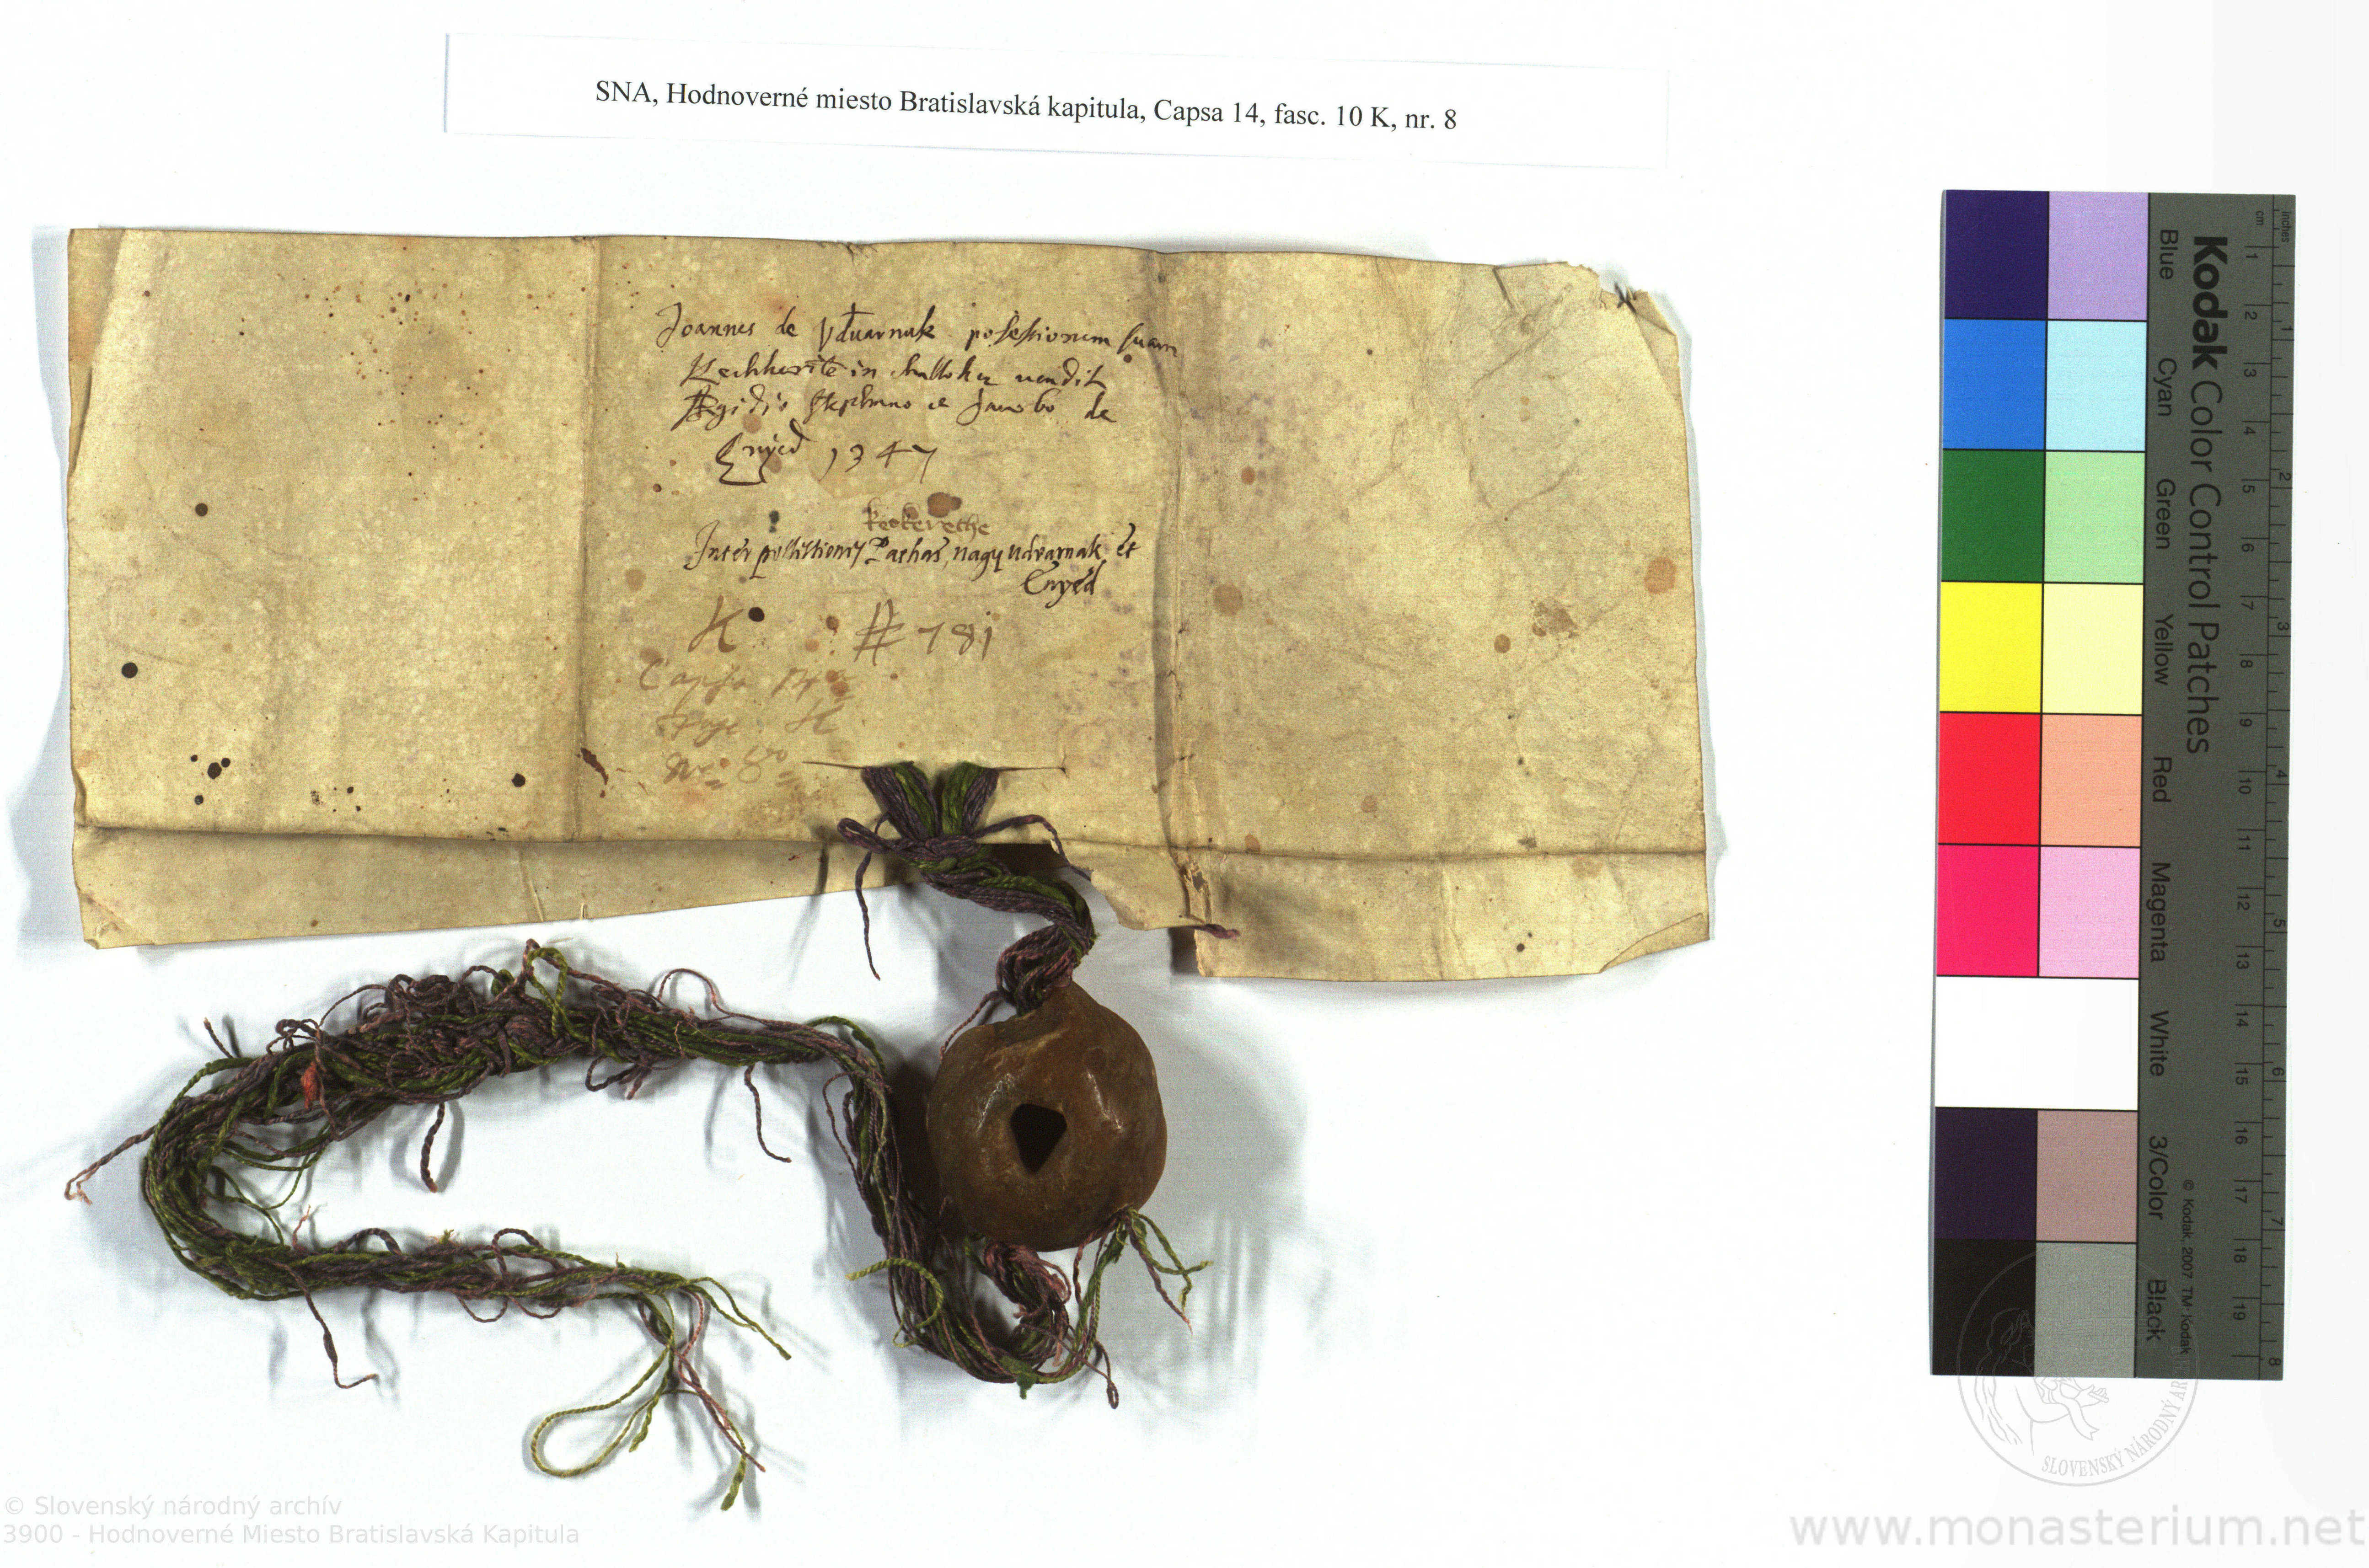 SNA, Hodnoverné miesto Bratislavská kapitula, Capsa 14, fasc. 10 K, nr. 8
Joannes de Vduarnuk possessionem suam
in vendit
Stephano et Jacobo de
Enyed 1347
keskerethe
Inter possessiones Pathas, nagy udvarnak et
Enyed
K # 781
Capsa 14
K
Nro 8
Kodak Color Control Patches
Blue Cyan Green Yellow Red Magenta White 3/Color Black
© Kodak, 2007 TM: Kodak
inches 1 2 3 4 5 6 7 8
cm 1 2 3 4 5 6 7 8 9 10 11 12 13 14 15 16 17 18 19
SLOVENSKÝ NÁRODNÝ AR
© Slovenský národný archív
3900 - Hodnoverné Miesto Bratislavská Kapitula
www.monasterium.net